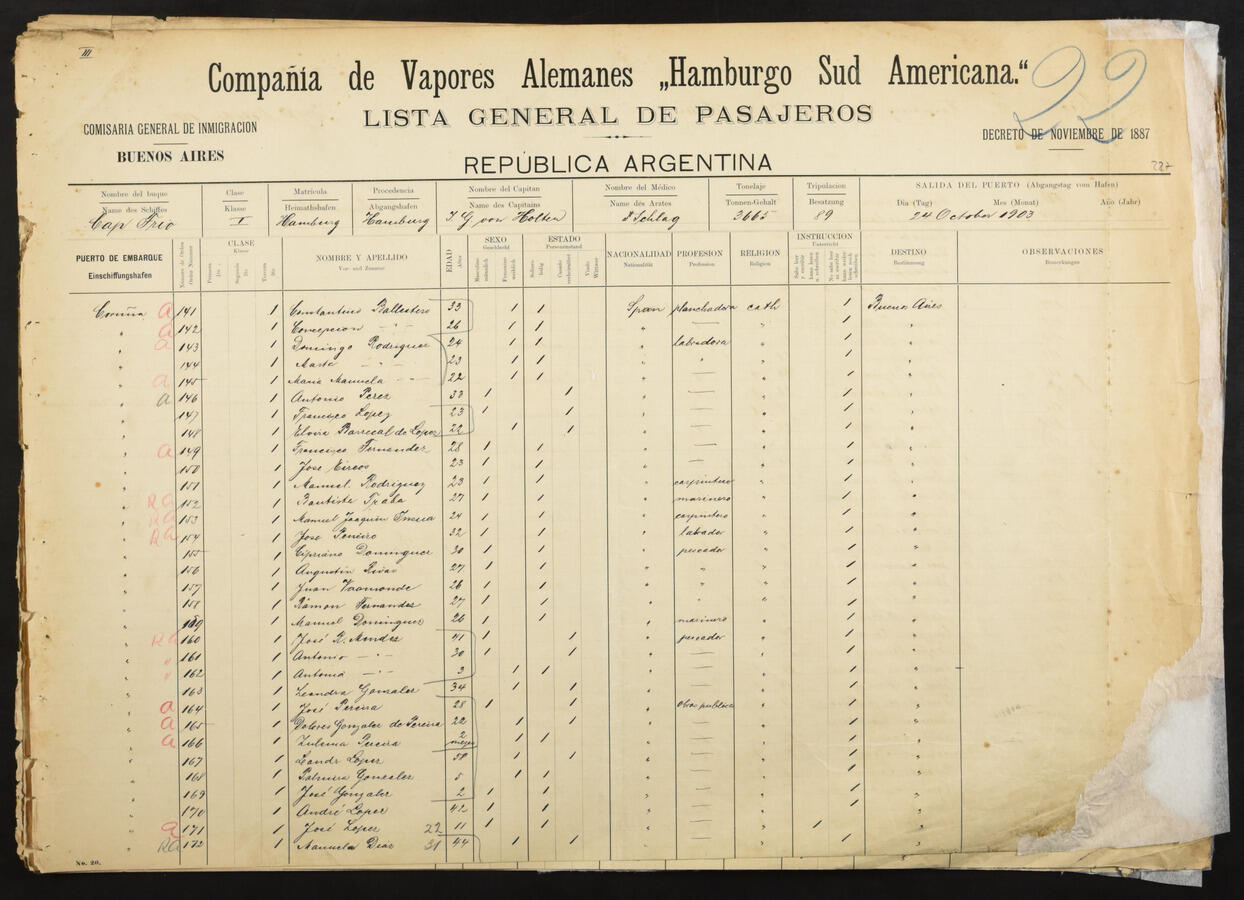 III
Compañía de Vapores Alemanes „Hamburgo Sud Americana.“
22
LISTA GENERAL DE PASAJEROS
COMISARIA GENERAL DE INMIGRACION
BUENOS AIRES
DECRETO DE NOVIEMBRE DE 1887
REPÚBLICA ARGENTINA
Nombre del buque Clase Matrícula Procedencia Nombre del Capitan Nombre del Médico Tonelaje Tripulacion SALIDA DEL PUERTO (Abgangstag vom Hafen)
Name des Schiffes Klasse Heimathshafen Abgangshafen Name des Capitains Name des Arztes Tonnen-Gehalt Besatzung Dia (Tag) Mes (Monat) Año (Jahr)
Cap Frio I Hamburg Hamburg J G. von Holten 3665 89 24 October 1903
PUERTO DE EMBARQUE
Einschiffungshafen
CLASE
Klasse
NOMBRE Y APELLIDO
Vor- und Zuname
EDAD
SEXO
Geschlecht
ESTADO
Personenstand
NACIONALIDAD
Nationalität
PROFESION
Profession
RELIGION
Religion
INSTRUCCION
Unterricht
DESTINO
Bestimmung
OBSERVACIONES
Bemerkungen
Coruña a 141 1 Constantina Ballestero 33 1 1 Span planchadora cath 1 Buenos Aires
" a 142 1 Concepcion - " - 26 1 1 " — " 1 "
" a 143 1 Domingo Rodriguez 24 1 1 " labradora " 1 "
" 144 1 23 1 1 " " " 1 "
" a 145 1 Maria Manuela - " - 22 1 1 " — " 1 "
" a 146 1 Antonio Perez 33 1 1 " — " 1 "
" 147 1 Francisco Lopez 23 1 1 " — " 1 "
" 148 1 Elvira Barreal de Lopez 22 1 1 " — " 1 "
" a 149 1 Francisco Fernandez 28 1 1 " — " 1 "
" 150 1 Jose 23 1 1 " — " 1 "
" 151 1 Manuel Rodriguez 23 1 1 " carpintero " 1 "
" Ra 152 1 Bautista Traba 27 1 1 " marinero " 1 "
" Ra 153 1 Manuel Joaquin 24 1 1 " carpintero " 1 "
" Ra 154 1 Jose 32 1 1 " labrador " 1 "
" 155 1 Cipriano Dominguez 30 1 1 " pescador " 1 "
" 156 1 Augustin Rivas 27 1 1 " " " 1 "
" 157 1 Juan Vaamonde 26 1 1 " " " 1 "
" 158 1 Ramon Fernandez 27 1 1 " " " 1 "
" 159 1 Manuel Dominguez 26 1 1 " marinero " 1 "
" Ra 160 1 José R. Mendez 41 1 1 " pescador " 1 "
" 161 1 Antonio - " - 30 1 1 " — " 1 "
" 162 1 Antonia - " - 3 1 1 " — " 1 "
" 163 1 Leandra Gonzalez 34 1 1 " — " 1 "
" a 164 1 José Pereira 28 1 1 " obras publicas " 1 "
" a 165 1 Dolores Gonzalez de Pereira 22 1 1 " — " 1 "
" a 166 1 Zulema Pereira 2 meses 1 1 " — " 1 "
" 167 1 Leandr Lopez 58 1 1 " — " 1 "
" 168 1 Palmira Gonzalez 5 1 1 " — " 1 "
" 169 1 José Gonzalez 2 1 1 " — " 1 "
" 170 1 André Lopez 42 1 1 " — " 1 "
" a 171 1 José Lopez 22 11 1 1 " — " 1 "
" Ra 172 1 Manuela Diaz 31 44 1 1 " — " 1 "
No. 20.